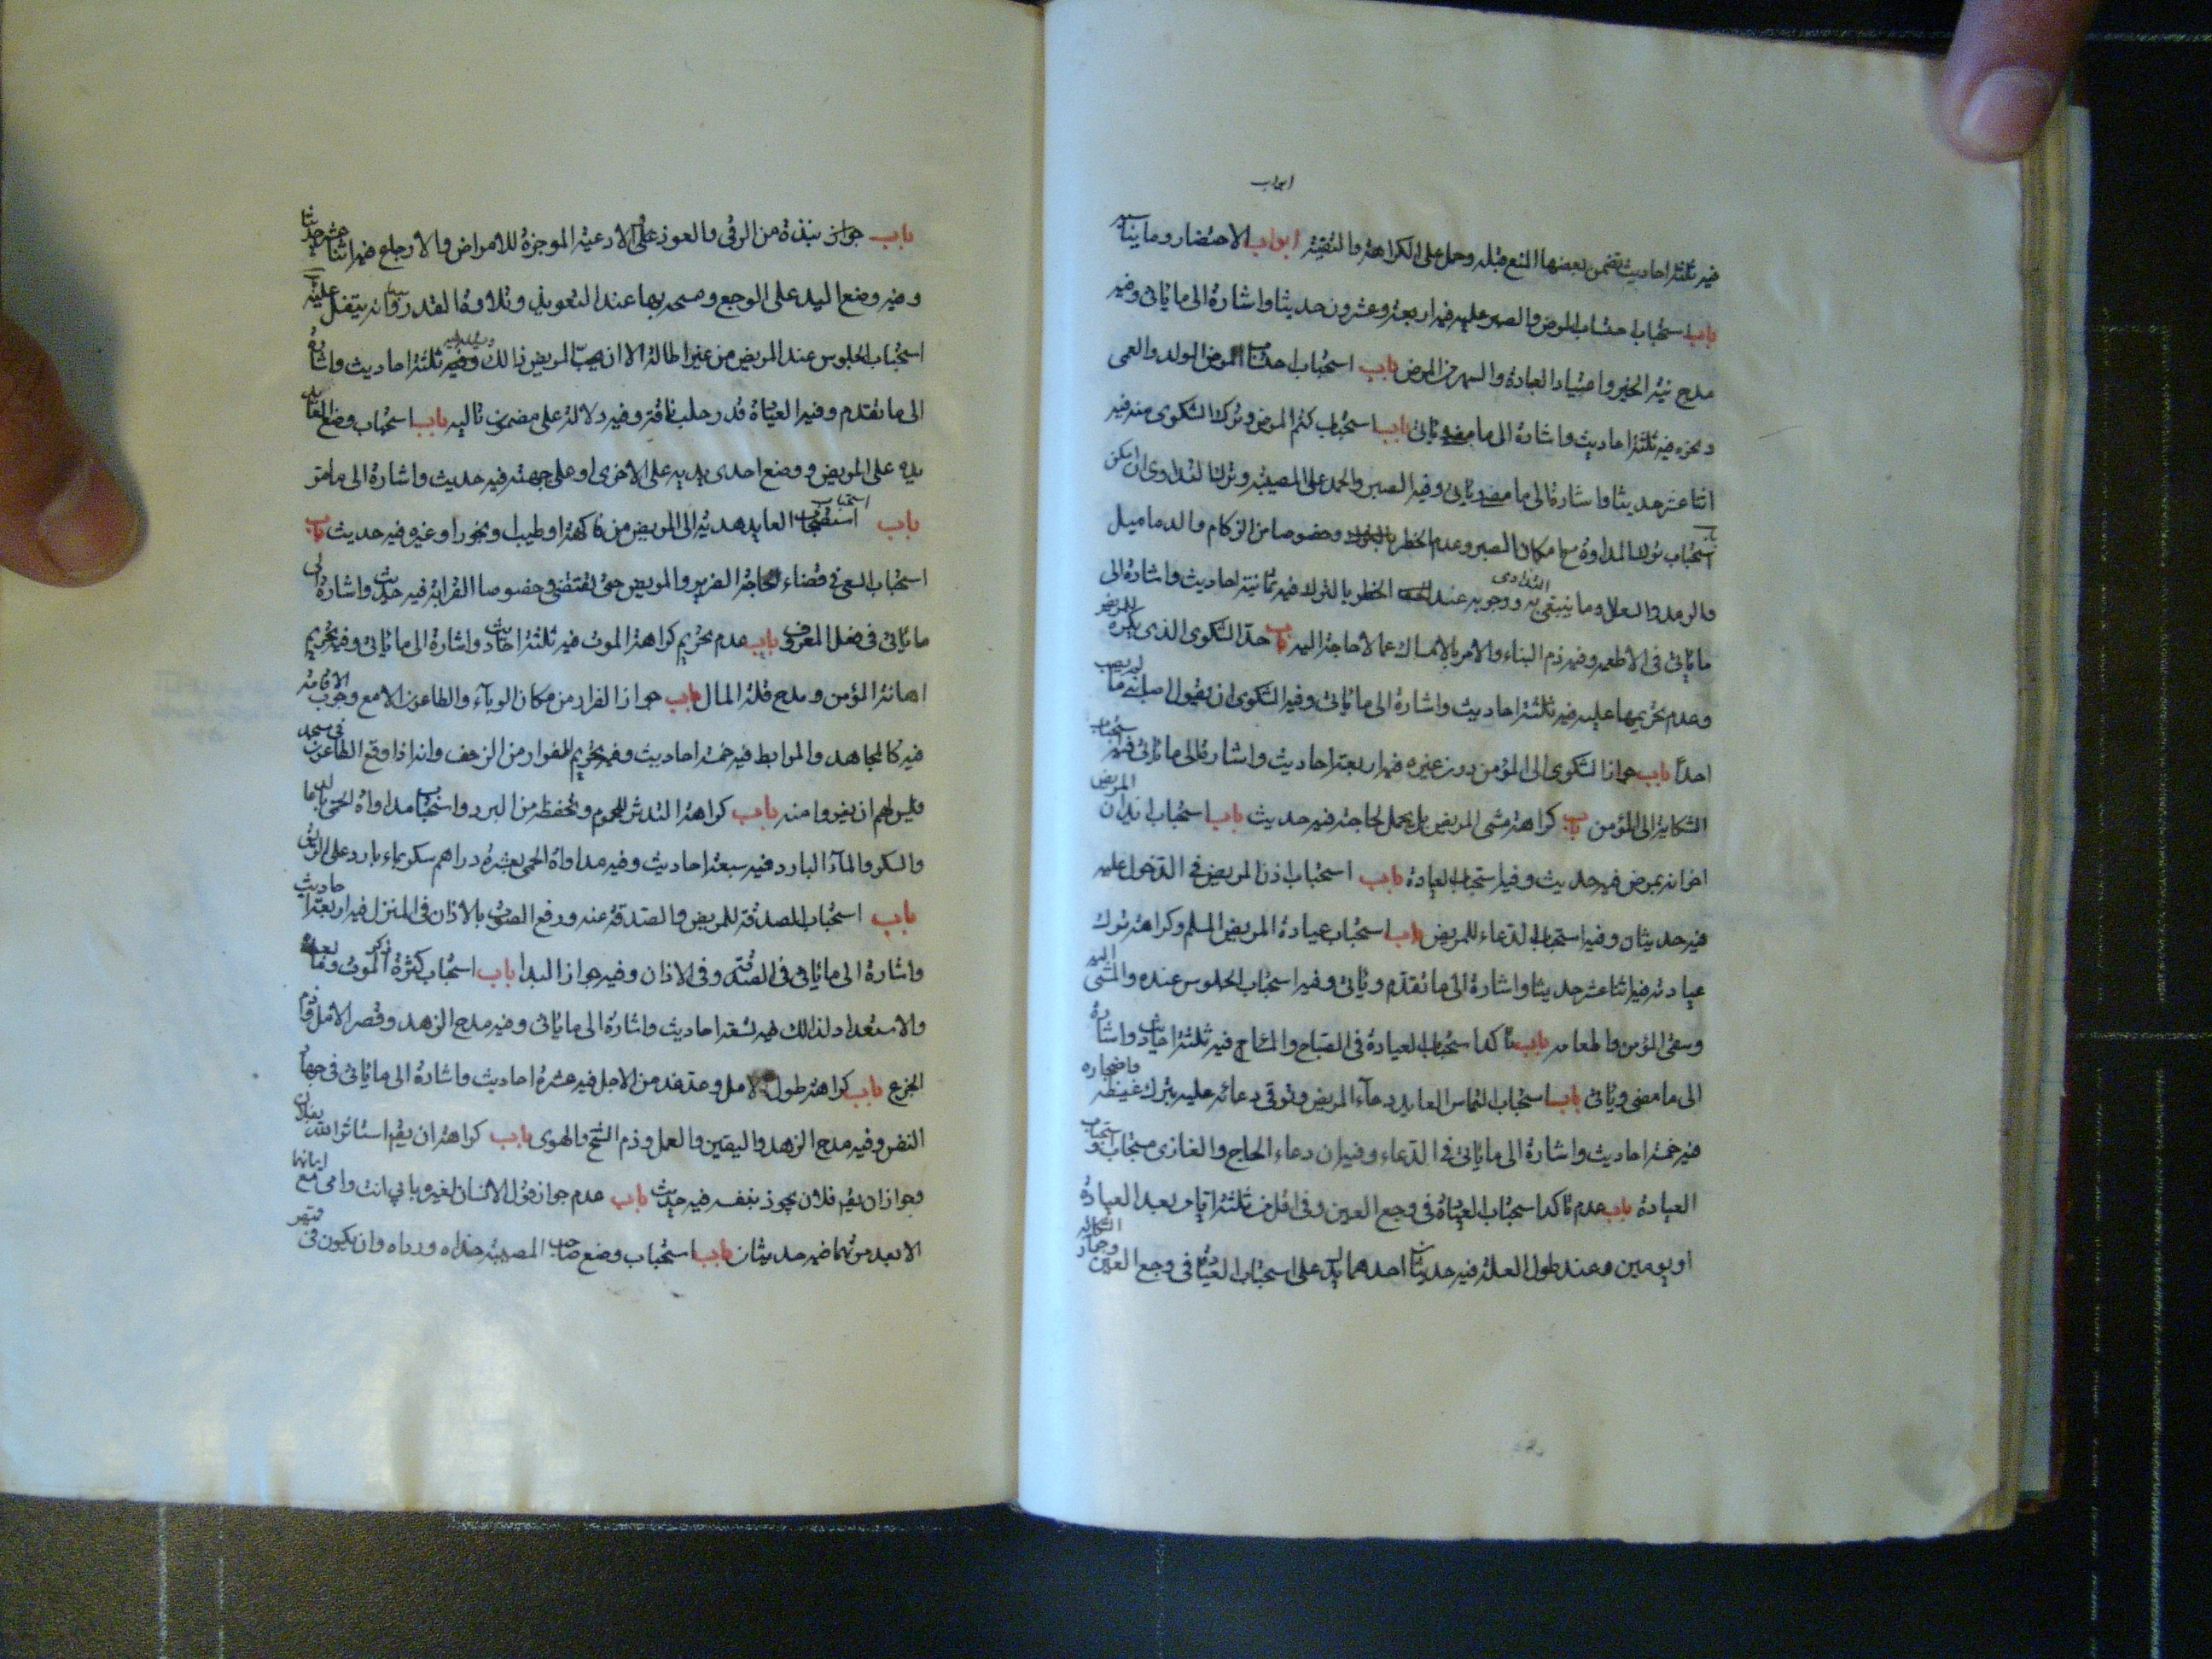 ابواب
فيه ثلثة احاديث تضمن بعضها المنع قبله وحمل على الكراهة والتقية ابواب الاحتضار وما يناسبه
باب استحباب احتساب المرض والصبر عليه فيه اربعة وعشرون حديثا واشارة الى ما ياتى وفيه
مدح نية الخير واعتياد العبادة والسهر فى المرض باب استحباب احتساب المرض الولد والعمى
ونحوه فيه ثلثة احاديث واشارة الى ما ياتى باب استحباب كتم المرض وترك الشكوى منه فيه
اثنا عشر حديثا واشارة الى ما ياتى وفيه الصبر والحمد على المصيبة وترك التداوى ان امكن
باب استحباب ترك المداوة مع امكان الصبر وعدم الخطر وخصوصا من الزكام والدماميل
والرمد والسعال وما ينبغى التداوى به ووجوبه عند الخطر بالترك فيه ثمانية احاديث واشارة الى
ما ياتى فى الاطعمه وفيه ذم البناء والامر بالامساك عما لا حاجة اليه باب حد الشكوى الذى يكره للمريض
وعدم تحريمها عليه فيه ثلثة احاديث واشارة الى ما ياتى وفيه الشكوى ان يقول اصابنى ما لم يصب
احدا باب جواز الشكوى الى المؤمن دون غيره فيه اربعة احاديث واشارة الى ما ياتى فيه استحباب
الشكاية الى المؤمن باب كراهة مشى المريض بل يحمل لحاجته فيه حديث باب استحباب ايذان المريض
اخوانه بمرضه فيه حديث وفيه استحباب العيادة باب استحباب اذن المريض فى الدخول عليه
فيه حديثان وفيه استحباب الدعاء للمريض باب استحباب عيادة المريض المسلم وكراهة ترك
عيادته فيه اثنا عشر حديثا واشارة الى ما تقدم وياتى وفيه استحباب الجلوس عنده والمشى اليه
وسقى المؤمن واطعامه باب تاكد استحباب العيادة فى الصباح والمساء فيه ثلثة احاديث واشارة
الى ما مضى وياتى باب استحباب التماس العايد دعاء المريض وتوقى دعائه عليه بترك غيظه واضجاره
فيه خمسة احاديث واشارة الى ما ياتى فى الدعاء وفيه ان دعاء الحاج والغازى مستجاب واستحباب
العيادة باب عدم تاكد استحباب العيادة فى وجع العين وفى اقل من ثلثة ايام بعد العيادة
او يومين وعند طول العلة فيه حديثان احدهما يدل على استحباب العيادة فى وجع العين
باب جواز نبذة من الرقى والعوذ والادعية الموجزة للامراض والاوجاع فيه اثنا عشر حديثا
وفيه وضع اليد على الوجع ومسحه بها عند التعويذ وتلاوة القدر وانه يتفل عليه باب
استحباب الجلوس عند المريض من غير اطالة الا ان يحب المريض ذالك وفيه ثلثة احاديث واشارة
الى ما تقدم وفيه العيادة قدر حلب ناقة وفيه دلالة على مضمون تاليه باب استحباب وضع العايد
يده على المريض ووضع احدى يديه على الاخرى او على جبهته فيه حديث واشارة الى ما مر
باب استحباب العايد هدية الى المريض من فاكهة او طيب او بخور او غيره فيه حديث باب
استحباب السعى فى قضاء حاجة الضرير والمريض حتى تقضى وخصوصا القرابة فيه حديث واشارة الى
ما ياتى فى فعل المعروف باب عدم تحريم كراهة الموت فيه ثلثة احاديث واشارة الى ما ياتى وفيه تحريم
اهانة المؤمن ومدح قلة المال باب جواز الفرار من مكان الوباء والطاعون الا مع وجوب الاقامة
فيه كالمجاهد والمرابط فيه خمسة احاديث وفيه تحريم الفرار من الزحف وانه اذا وقع الطاعون فى مسجد
فليس لهم ان يفروا منه باب كراهة التدثر للمحموم وتحفظه من البرد واستحباب مداواة الحمى بالدعا
والسكر والماء البارد فيه سبعة احاديث وفيه مداواة الحمى بعشرة دراهم سكر بماء بارد على الريق
باب استحباب الصدقة للمريض والصدقة عنه ورفع الصوت بالاذان فى المنزل فيه اربعة احاديث
واشارة الى ما ياتى فى الصدقة وفى الاذان وفيه جواز البدا باب استحباب كثرة ذكر الموت وما بعده
والاستعداد لذالك فيه تسعة احاديث واشارة الى ما ياتى وفيه مدح الزهد وقصر الامل وذم
الجزع باب كراهة طول الامل وعد غد من الاجل فيه عشرة احاديث واشارة الى ما ياتى فى جهاد
النفس وفيه مدح الزهد واليقين والعمل وذم الشح والهوى باب كراهة ان يقم استاثر الله بفلان
وجواز ان يقم فلان يجود بنفسه فيه حديث باب عدم جواز قول الانسان لغيره بابى انت وامى مع ايمانهما
الا بعد موتهما فيه حديثان باب استحباب وضع صاحب المصيبة حذاه ورداه وان يكون فى